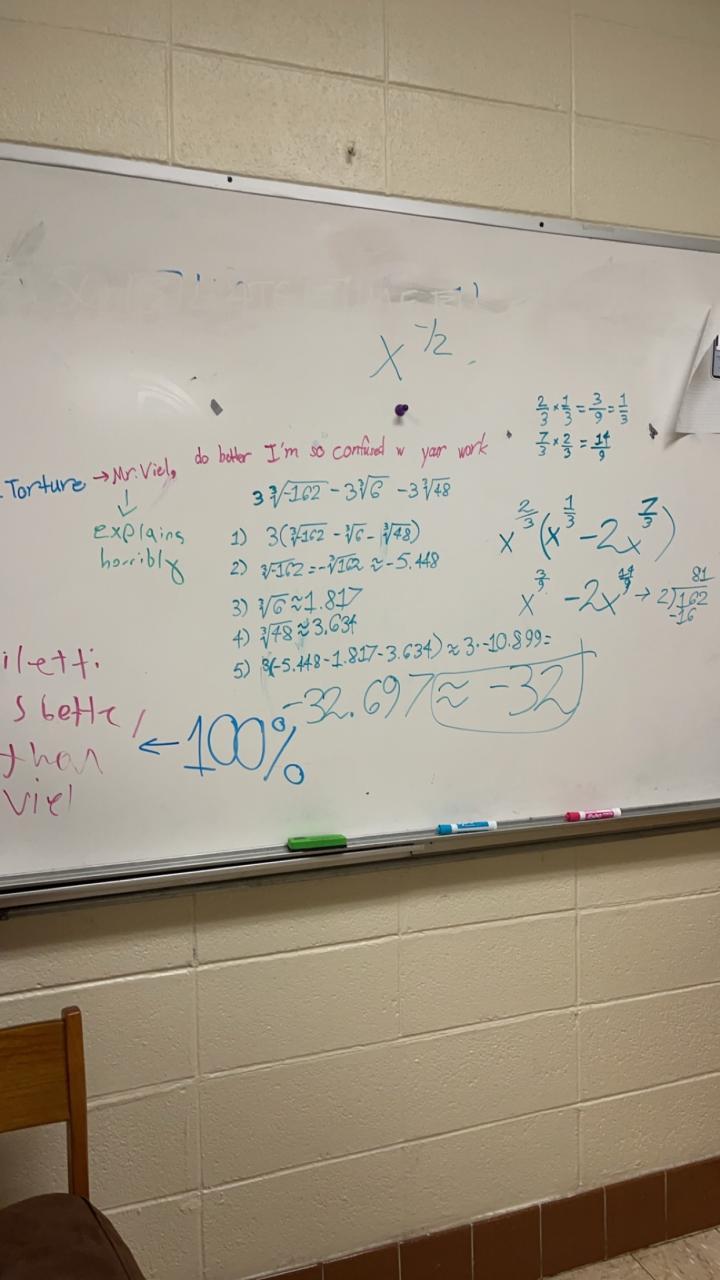 x^-1/2
2/3 × 1/3 = 3/9 = 1/3
7/3 × 2/3 = 14/9
.Torture → Mr. Viel, do better I'm so confused w your work
↓
explains
horribly
3∛-162 - 3∛6 - 3∛48
1) 3(∛-162 - ∛6 - ∛48)
2) ∛-162 = -∛162 ≈ -5.448
3) ∛6 ≈ 1.817
4) ∛48 ≈ 3.634
5) 3(-5.448-1.817-3.634) ≈ 3·-10.899=
-32.697 ≈ -32
x^2/3 (x^1/3 - 2x^7/3)
x^3/9 - 2x^14/9 →
81
2)162
-16
iletti
s bette
than
viel
← 100%